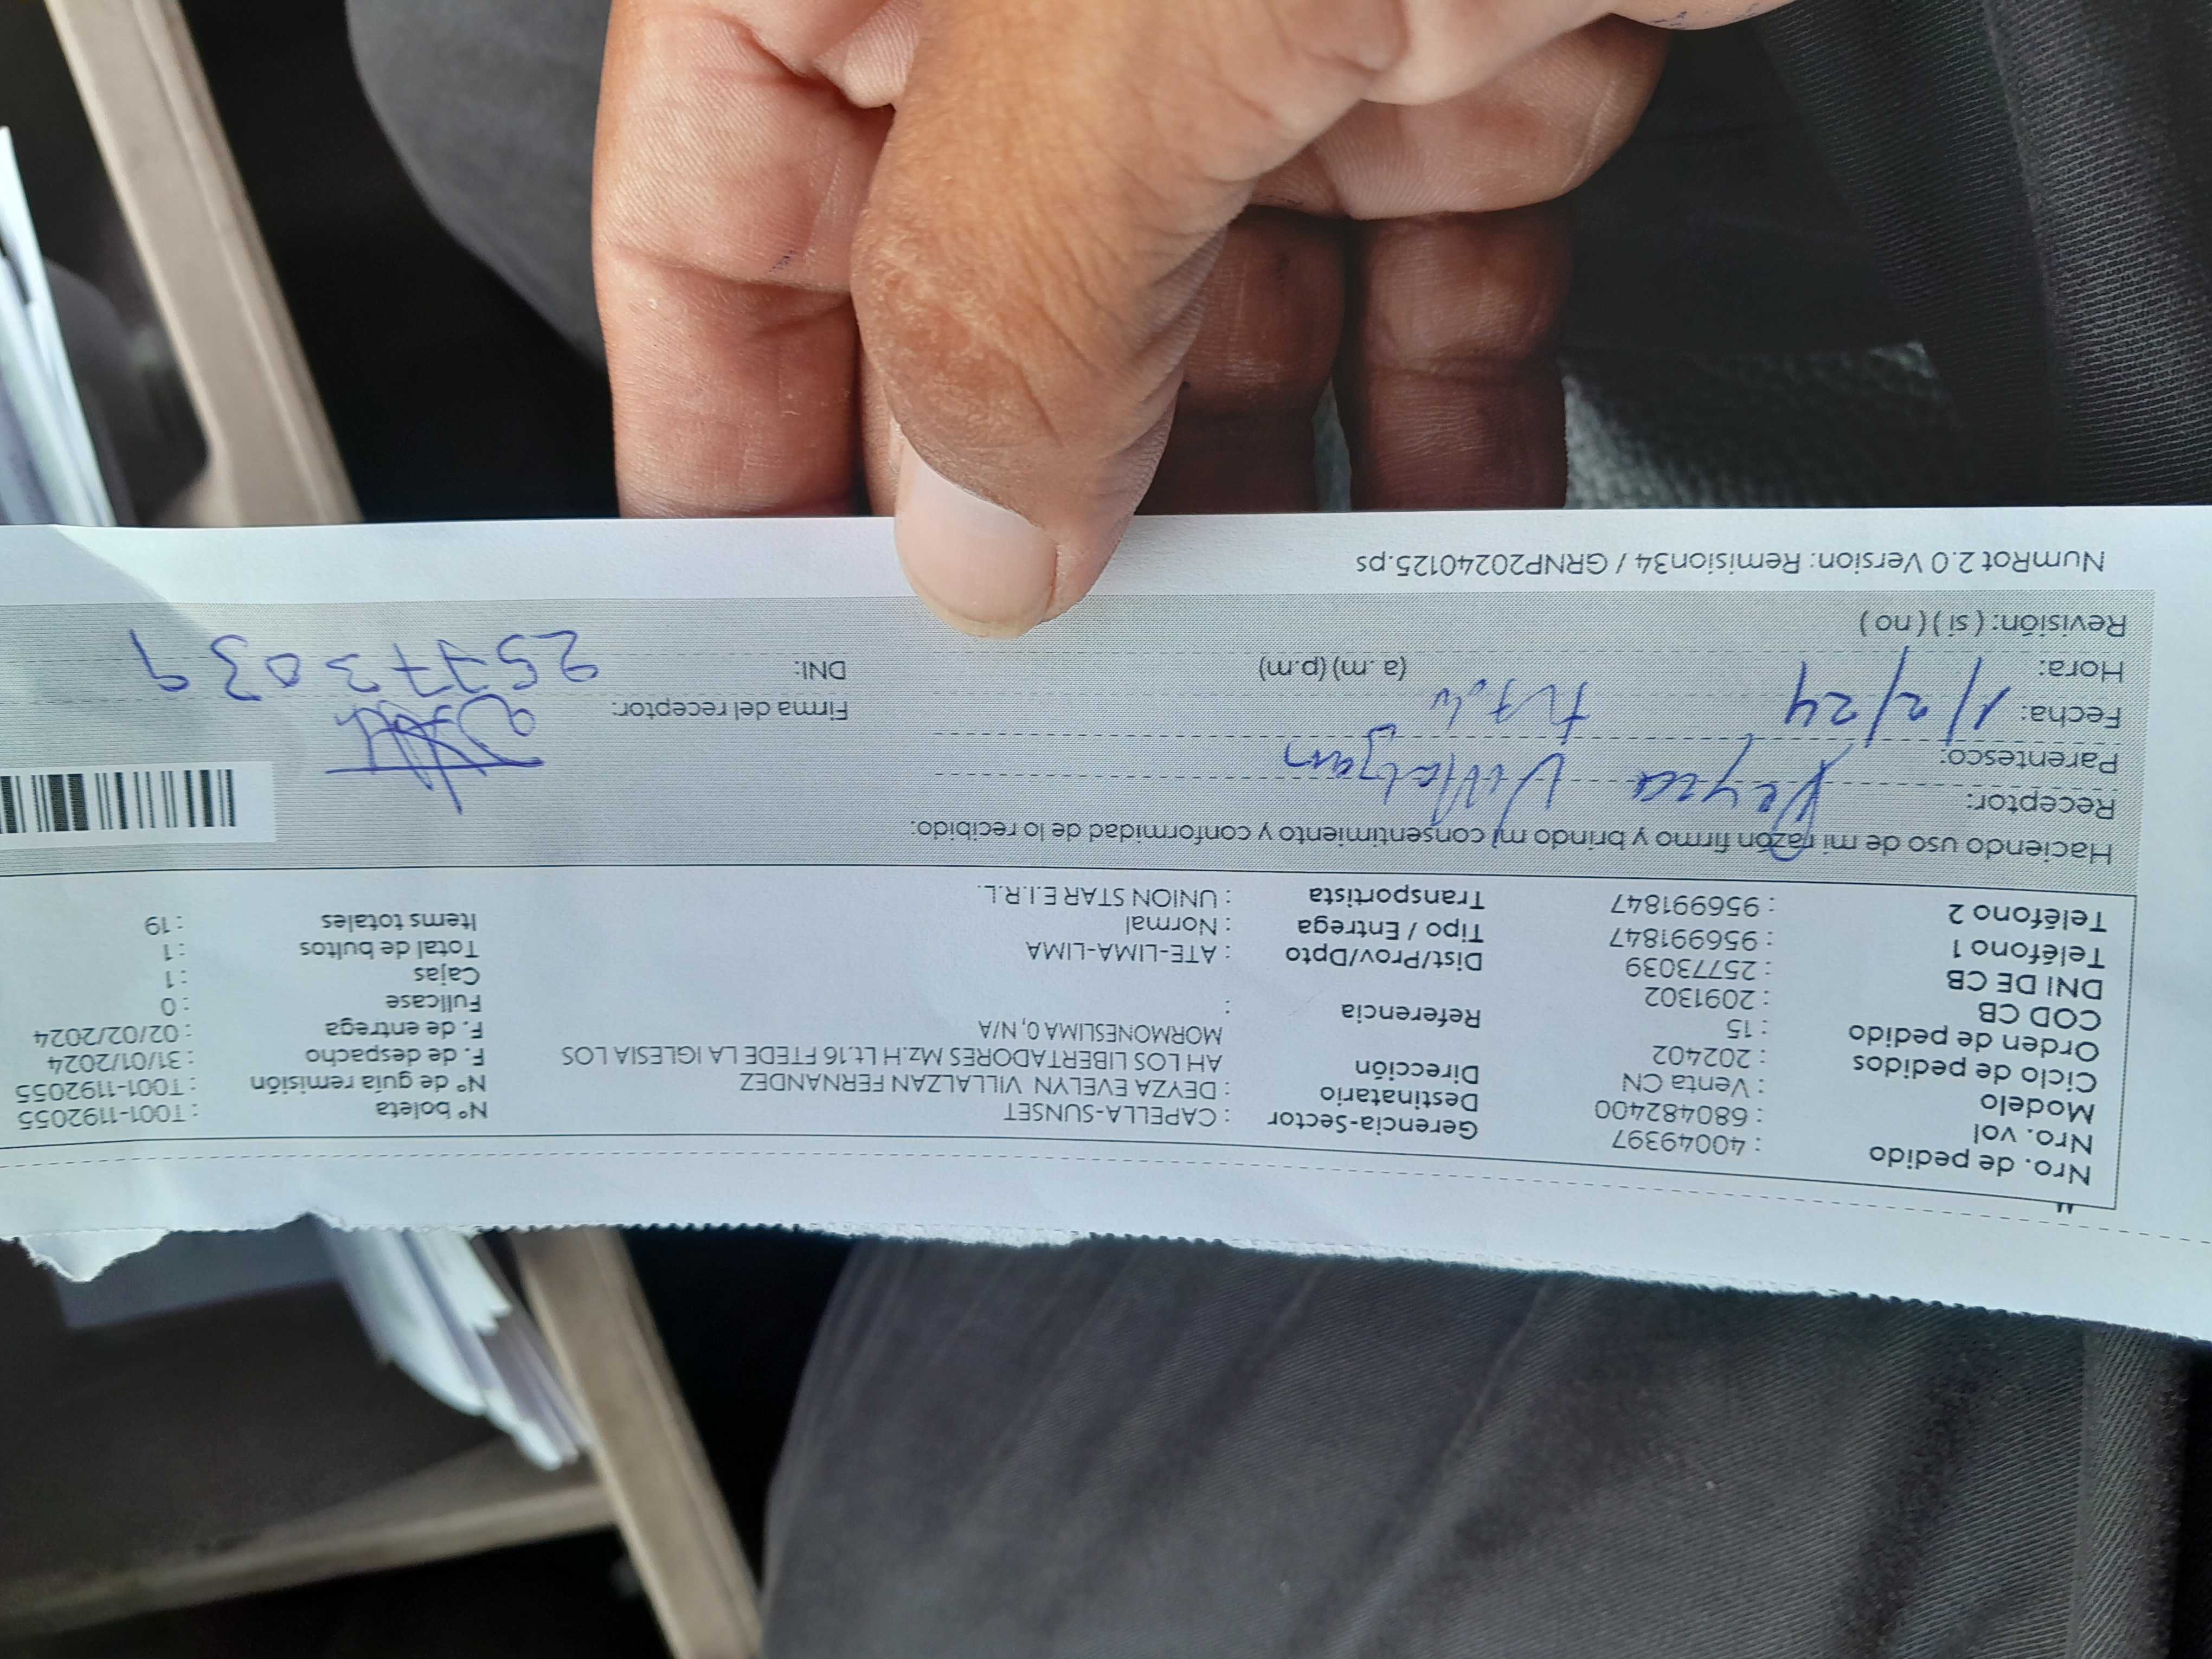 Nro. de pedido : 40049397
Nro. vol : 680482400
Modelo : Venta CN
Ciclo de pedidos : 202402
Orden de pedido : 15
COD CB : 2091302
DNI DE CB : 25773039
Teléfono 1 : 956991847
Teléfono 2 : 956991847
Gerencia-Sector : CAPELLA-SUNSET
Destinatario : DEYZA EVELYN VILLALZAN FERNANDEZ
Dirección AH LOS LIBERTADORES Mz.H Lt.16 FTEDE LA IGLESIA LOS
MORMONESLIMA 0, N/A
Referencia :
Dist/Prov/Dpto : ATE-LIMA-LIMA
Tipo / Entrega : Normal
Transportista : UNION STAR E.I.R.L.
N° boleta : T001-1192055
N° de guía remisión : T001-1192055
F. de despacho : 31/01/2024
F. de entrega : 02/02/2024
Fullcase : 0
Cajas : 1
Total de bultos : 1
Items totales : 19
Haciendo uso de mi razón firmo y brindo mi consentimiento y conformidad de lo recibido:
Receptor: Deyza Villalzan
Parentesco:
Fecha: 1/2/24
Hora: (a .m) (p.m)
Revisión: ( si ) ( no )
Firma del receptor:
DNI: 25773039
NumRot 2.0 Version: Remision34 / GRNP20240125.ps